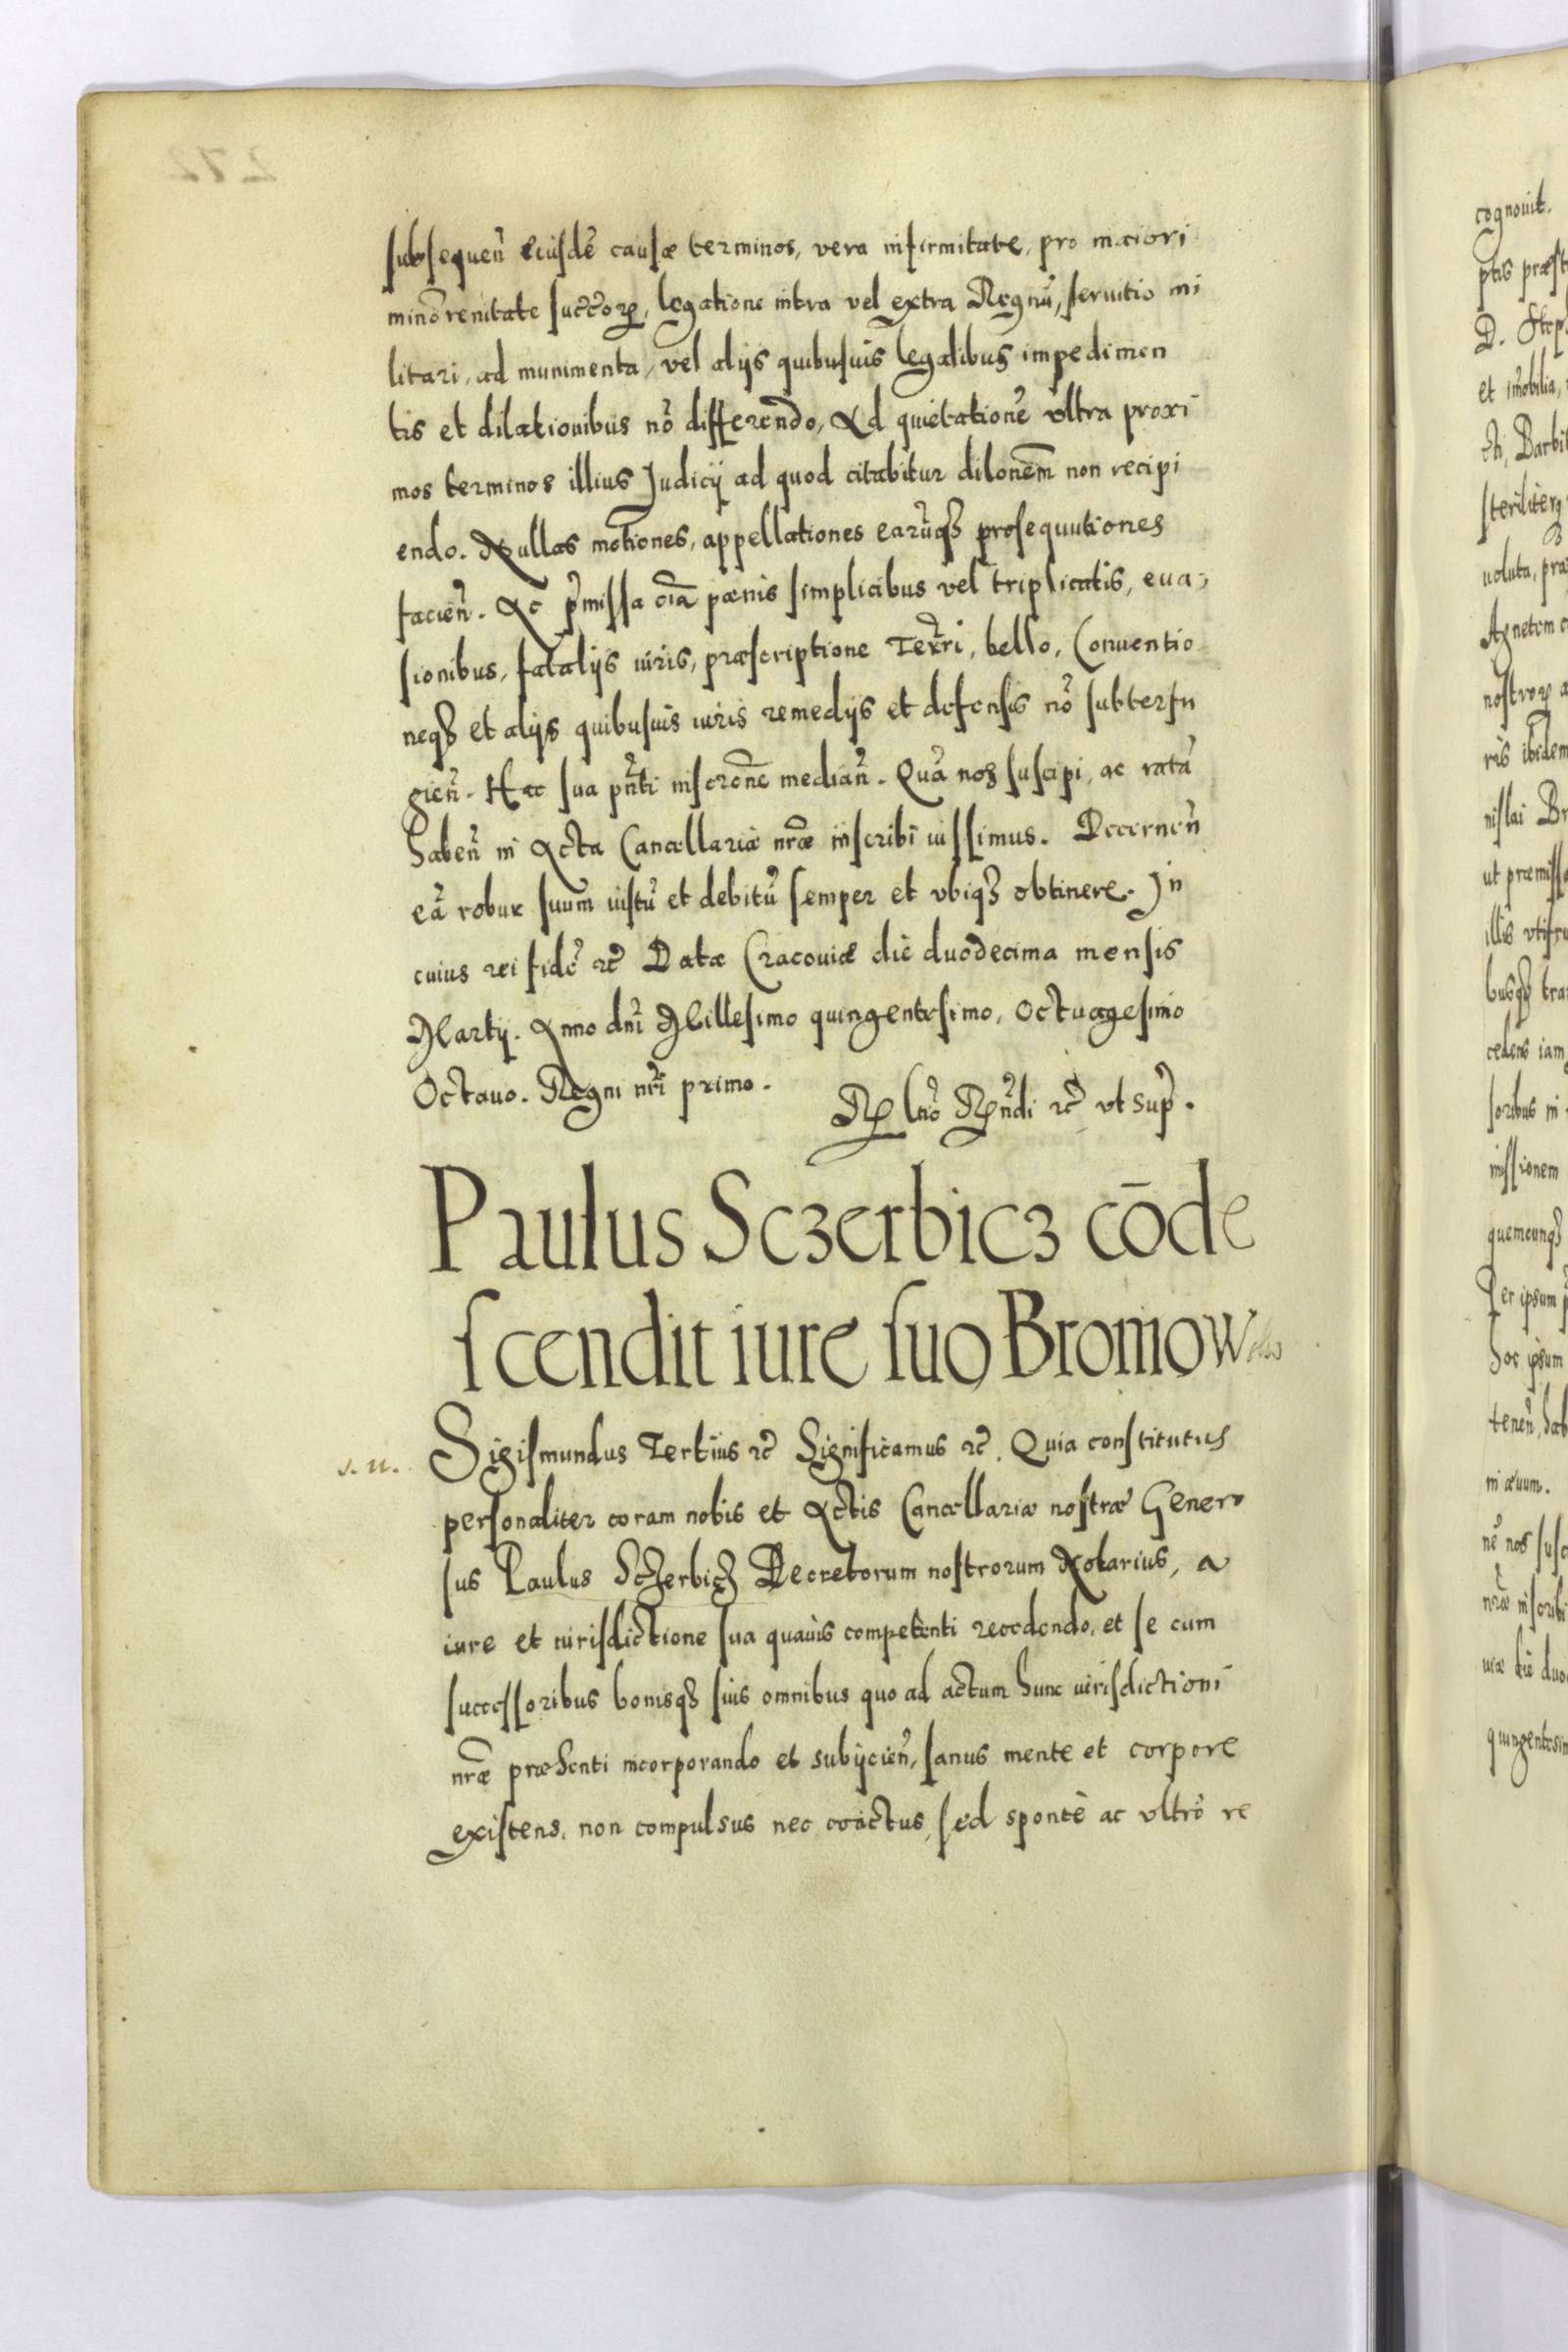 subsequeñ eiusdẽ causæ terminos, vera infirmitate, pro maiori
minorenitate succꝛoꝝ, legatione intra vel extra Regnũ, seruitio mi
litari, ad munimenta, vel alijs quibusuis legalibus impedimen
tis et dilationibus nõ differendo, Ad quietationẽ vltra proxi
mos terminos illius Judicij ad quod citabitur dilonem̃ non recipi
endo. Nullas motiones, appellationes earũqȝ prosequutiones
facieñ. Ac p̃missa oĩa pænis simplicibus vel triplicatis, eua-
sionibus, fatalijs iuris, præscriptione Terr̃i, bello, Conuentio
neqȝ et alijs quibusuis iuris remedijs et defensis nõ subterfu
gieñ. Hac sua pñti inscr̃one mediañ. Quã nos suscipi, ac ratã
habeñ in Acta Cancellariæ nr̃æ inscribi iussimus. Decerneñ
eã robur suum iustũ et debitũ semper et vbiqȝ obtinere. In
cuius rei fidẽ ꝛc̃ Datæ Cracouiæ die duodecima mensis
Martij. Anno dñi Millesimo quingentesimo, Octuagesimo
Octauo. Regni nr̃i primo.
Rꝑ Cño Rꝑñdi ꝛc̃ vt sup̃.
Paulus Sczerbicz cōde
scendit iure suo Bromow
s. n.
Sigismundus Tertius ꝛc̃ Significamus ꝛc̃. Quia constitutus
personaliter coram nobis et Actis Cancellariæ nostræ Genero
sus Paulus Sczerbicz Decretorum nostrorum Notarius, a
iure et iurisdictione sua quauis competenti recedendo, et se cum
successoribus bonisqȝ suis omnibus quo ad actum hunc iurisdictioni
nr̃æ præsenti incorporando et subijcieñ, sanus mente et corpore
existens, non compulsus nec coactus, sed spontè ac vltrò re
cognouit.
D. Step
et im̃obilia,
uoluta, præ
Agnetem
nostroꝝ a
ris ibidem
nislai Br
ut præmissa
busqȝ tra
cedens iam
soribus in
missionem
quemcunqȝ
Per ipsum
hoc ipsum
teneñ, hab
in æuum.
nẽ nos susc
nr̃æ inscribi
uiæ die duo
quingentesim